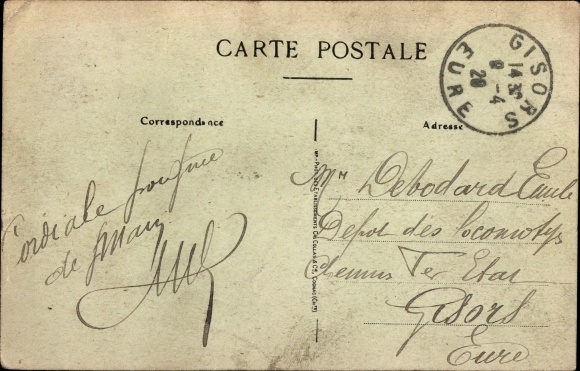 CARTE POSTALE
GISORS
14 35
8 - 4
28
EURE
Correspondance
Adresse
Cordiale poignée
de Main
Mr Debodard Emile
Depot des locomotys
Chemins Fer Etat
Gisors
Eure